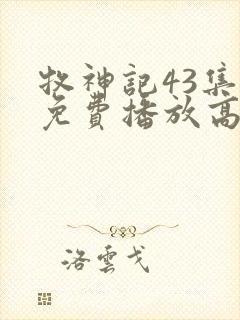 牧神記43集
免費播放高
洛雲戈